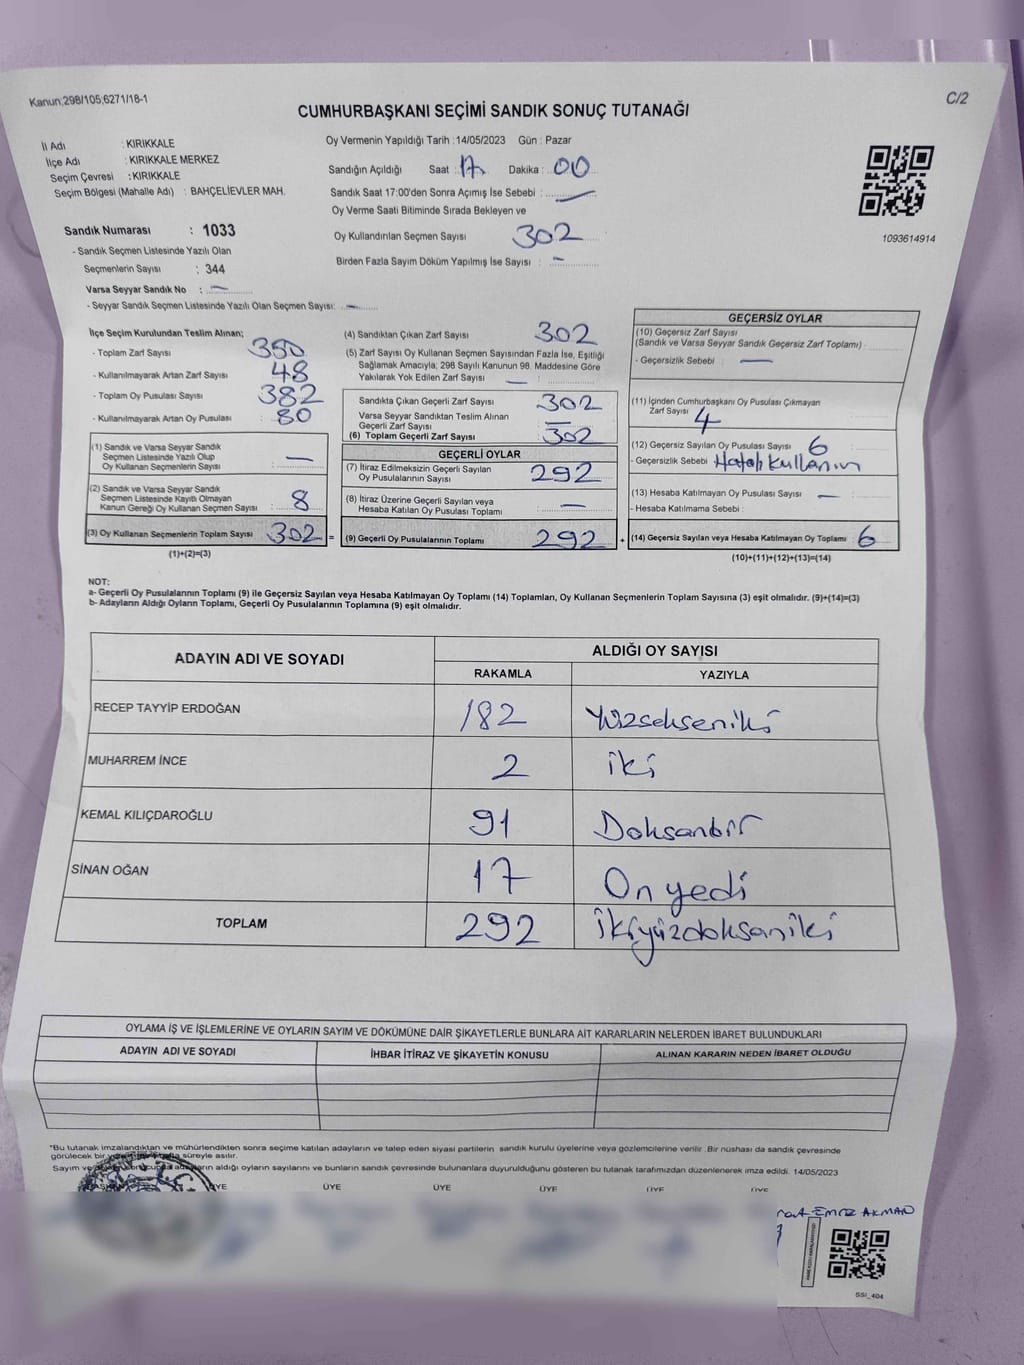 Kanun;298/105;6271/18-1
C/2
CUMHURBAŞKANI SEÇİMİ SANDIK SONUÇ TUTANAĞI
İl Adı : KIRIKKALE
İlçe Adı : KIRIKKALE MERKEZ
Seçim Çevresi : KIRIKKALE
Seçim Bölgesi (Mahalle Adı) : BAHÇELİEVLER MAH.
Sandık Numarası : 1033
- Sandık Seçmen Listesinde Yazılı Olan
Seçmenlerin Sayısı : 344
Varsa Seyyar Sandık No : —
- Seyyar Sandık Seçmen Listesinde Yazılı Olan Seçmen Sayısı: —
Oy Vermenin Yapıldığı Tarih : 14/05/2023 Gün : Pazar
Sandığın Açıldığı Saat : 17 Dakika : 00
Sandık Saat 17:00'den Sonra Açımış İse Sebebi : —
Oy Verme Saati Bitiminde Sırada Bekleyen ve
Oy Kullandırılan Seçmen Sayısı 302
Birden Fazla Sayım Döküm Yapılmış İse Sayısı : —
1093614914
İlçe Seçim Kurulundan Teslim Alınan;
- Toplam Zarf Sayısı 350
- Kullanılmayarak Artan Zarf Sayısı : 48
- Toplam Oy Pusulası Sayısı : 382
- Kullanılmayarak Artan Oy Pusulası : 80
(1) Sandık ve Varsa Seyyar Sandık
Seçmen Listesinde Yazılı Olup
Oy Kullanan Seçmenlerin Sayısı : —
(2) Sandık ve Varsa Seyyar Sandık
Seçmen Listesinde Kayıtlı Olmayan
Kanun Gereği Oy Kullanan Seçmen Sayısı : 8
(3) Oy Kullanan Seçmenlerin Toplam Sayısı 302 =
(1)+(2)=(3)
(4) Sandıktan Çıkan Zarf Sayısı 302
(5) Zarf Sayısı Oy Kullanan Seçmen Sayısından Fazla İse, Eşitliği
Sağlamak Amacıyla; 298 Sayılı Kanunun 98. Maddesine Göre
Yakılarak Yok Edilen Zarf Sayısı — :
Sandıkta Çıkan Geçerli Zarf Sayısı : 302
Varsa Seyyar Sandıktan Teslim Alınan
Geçerli Zarf Sayısı : —
(6) Toplam Geçerli Zarf Sayısı : 302
GEÇERLİ OYLAR
(7) İtiraz Edilmeksizin Geçerli Sayılan
Oy Pusulasının Sayısı : 292
(8) İtiraz Üzerine Geçerli Sayılan veya
Hesaba Katılan Oy Pusulası Toplamı : —
(9) Geçerli Oy Pusulalarının Toplamı : 292 +
GEÇERSİZ OYLAR
(10) Geçersiz Zarf Sayısı
(Sandık ve Varsa Seyyar Sandık Geçersiz Zarf Toplamı) :
- Geçersizlik Sebebi : —
(11) İçinden Cumhurbaşkanı Oy Pusulası Çıkmayan
Zarf Sayısı 4
(12) Geçersiz Sayılan Oy Pusulası Sayısı : 6
- Geçersizlik Sebebi : Hatalı kullanım
(13) Hesaba Katılmayan Oy Pusulası Sayısı : —
- Hesaba Katılmama Sebebi :
(14) Geçersiz Sayılan veya Hesaba Katılmayan Oy Toplamı : 6
(10)+(11)+(12)+(13)=(14)
NOT:
a- Geçerli Oy Pusulalarının Toplamı (9) ile Geçersiz Sayılan veya Hesaba Katılmayan Oy Toplamı (14) Toplamları, Oy Kullanan Seçmenlerin Toplam Sayısına (3) eşit olmalıdır. (9)+(14)=(3)
b- Adayların Aldığı Oyların Toplamı, Geçerli Oy Pusulalarının Toplamına (9) eşit olmalıdır.
ADAYIN ADI VE SOYADI ALDIĞI OY SAYISI
RAKAMLA YAZIYLA
RECEP TAYYİP ERDOĞAN 182 Yüzsekseniki
MUHARREM İNCE 2 iki
KEMAL KILIÇDAROĞLU 91 Doksanbir
SİNAN OĞAN 17 On yedi
TOPLAM 292 İkiyüzdoksaniki
OYLAMA İŞ VE İŞLEMLERİNE VE OYLARIN SAYIM VE DÖKÜMÜNE DAİR ŞİKAYETLERLE BUNLARA AİT KARARLARIN NELERDEN İBARET BULUNDUKLARI
ADAYIN ADI VE SOYADI İHBAR İTİRAZ VE ŞİKAYETİN KONUSU ALINAN KARARIN NEDEN İBARET OLDUĞU
"Bu tutanak imzalandıktan ve mühürlendikten sonra seçime katılan adayların ve talep eden siyasi partilerin sandık kurulu üyelerine veya gözlemcilerine verilir. Bir nüshası da sandık çevresinde
görülecek bir süreyle asılır.
Sayım ve adayların aldığı oyların sayılarını ve bunların sandık çevresinde bulunanlara duyurulduğunu gösteren bu tutanak tarafımızdan düzenlenerek imza edildi. 14/05/2023
ÜYE ÜYE ÜYE ÜYE ÜYE ÜYE
EMRE AKMAN
SSİ_404